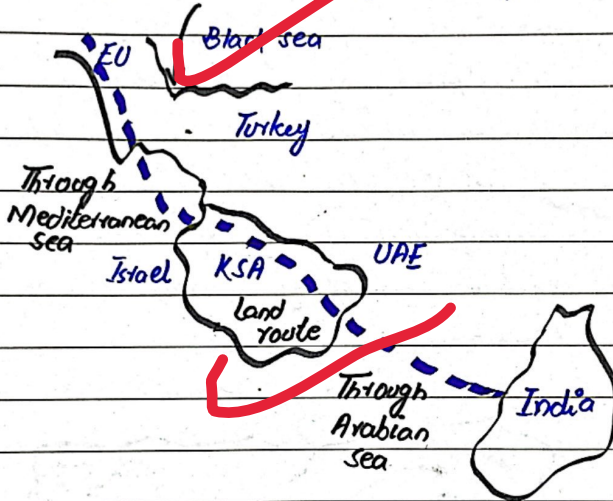 Black sea
EU
Turkey
Through
Mediterranean
sea
Israel
KSA
UAE
Land
route
Through
Arabian
sea
India